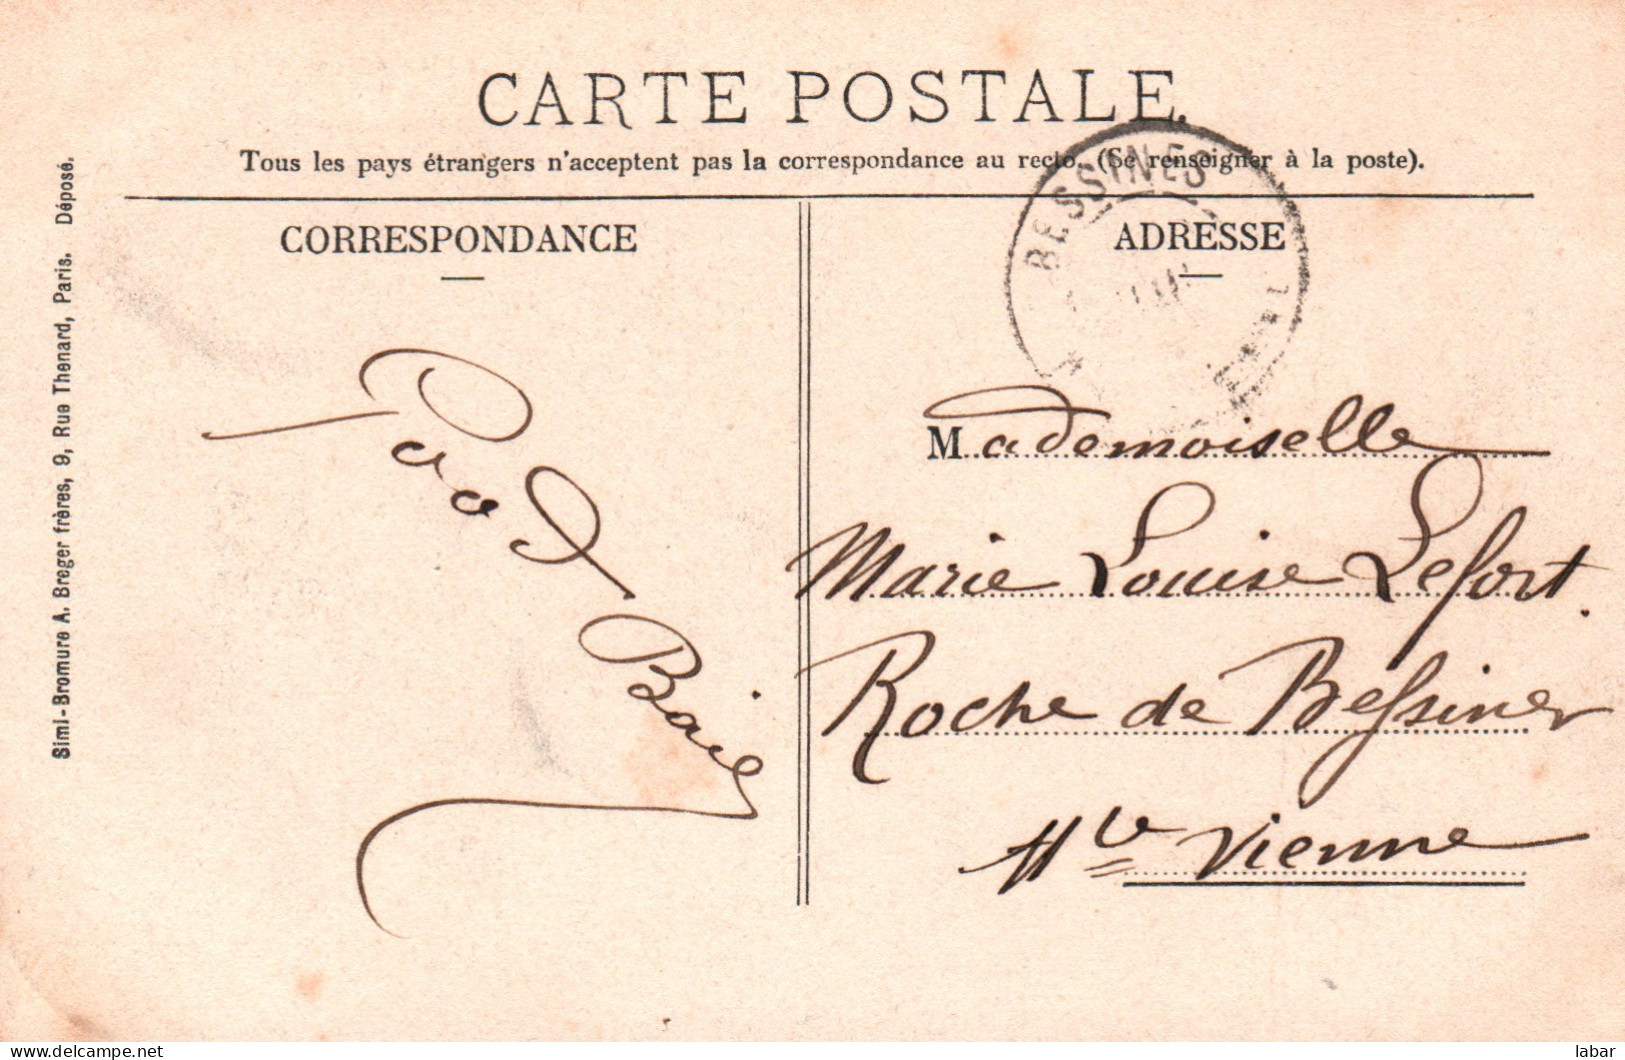 CARTE POSTALE.
Tous les pays étrangers n'acceptent pas la correspondance au recto. (Se renseigner à la poste).
CORRESPONDANCE
ADRESSE
BESSINES
Simi-Bromure A. Breger frères, 9, Rue Thenard, Paris. Déposé.
Good
Mademoiselle
Marie Louise Lefort.
Roche de Bessines
Hte Vienne
delcampe.net
labar